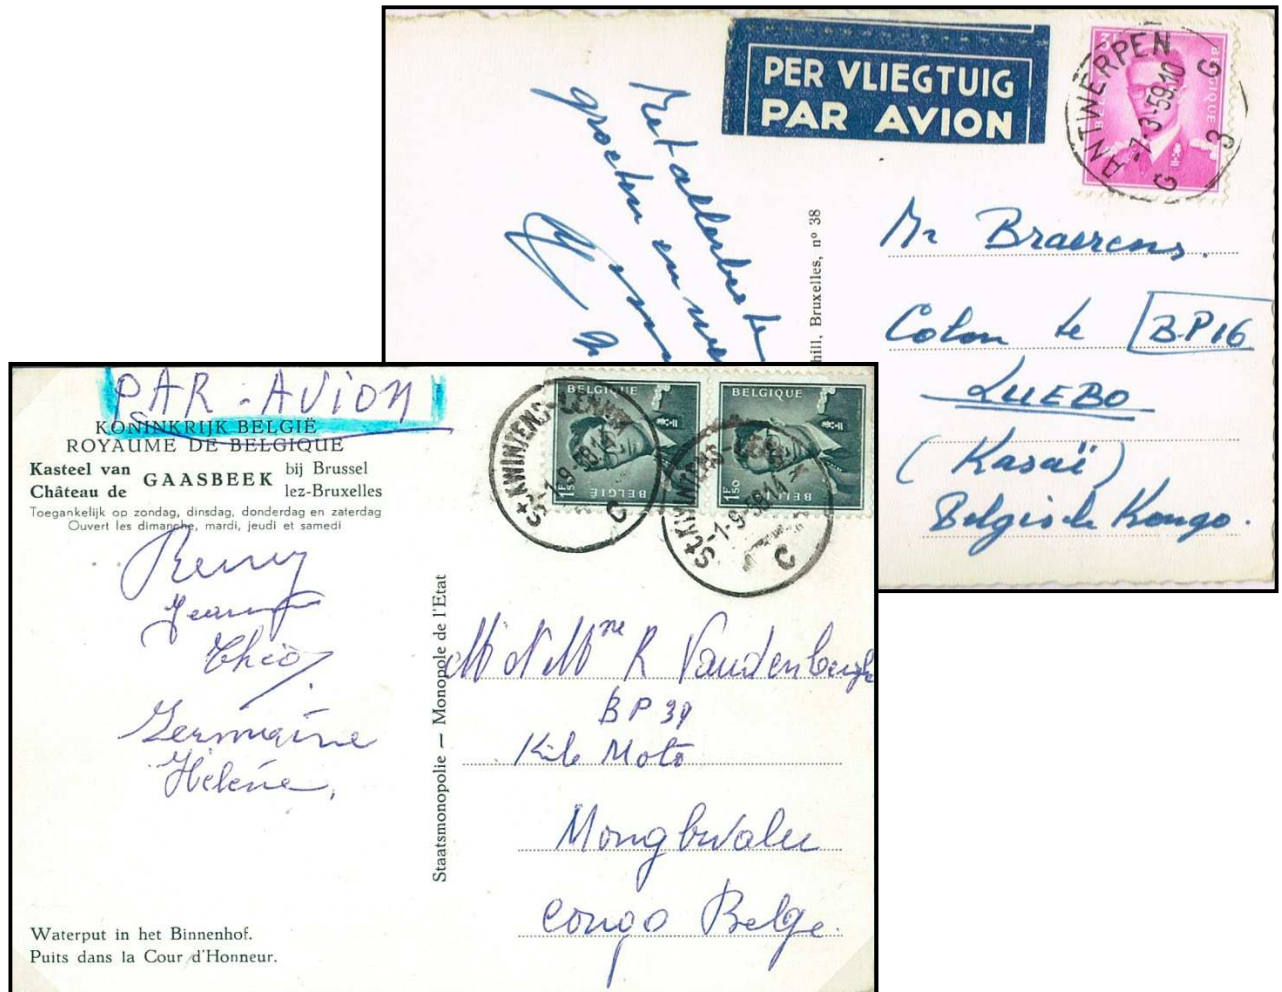 PER VLIEGTUIG
PAR AVION
ANTWERPEN
-7-3-59.10
G 3 G
BELGIQUE
Met allerbeste
groeten
Mr Braerens.
Colon te B.P 16
LUEBO
(Kasaï)
Belgische Kongo.
hill, Bruxelles, nº 38
PAR-AVION
KONINKRIJK BELGIË
ROYAUME DE BELGIQUE
Kasteel van GAASBEEK bij Brussel
Château de lez-Bruxelles
Toegankelijk op zondag, dinsdag, donderdag en zaterdag
Ouvert les dimanche, mardi, jeudi et samedi
Remy
Théo
Germaine
Hélène.
Waterput in het Binnenhof.
Puits dans la Cour d'Honneur.
Staatsmonopolie — Monopole de l'Etat
BELGIQUE
1F50
BELGIË
BELGIQUE
1F50
BELGIË
St KWINTENS-LENNIK
-1-9-58.14
C
St KWINTENS-LENNIK
-1-9-58.14
C
R Vandenbergh
BP 39
Kilo Moto
Mongbwalu
Congo Belge.